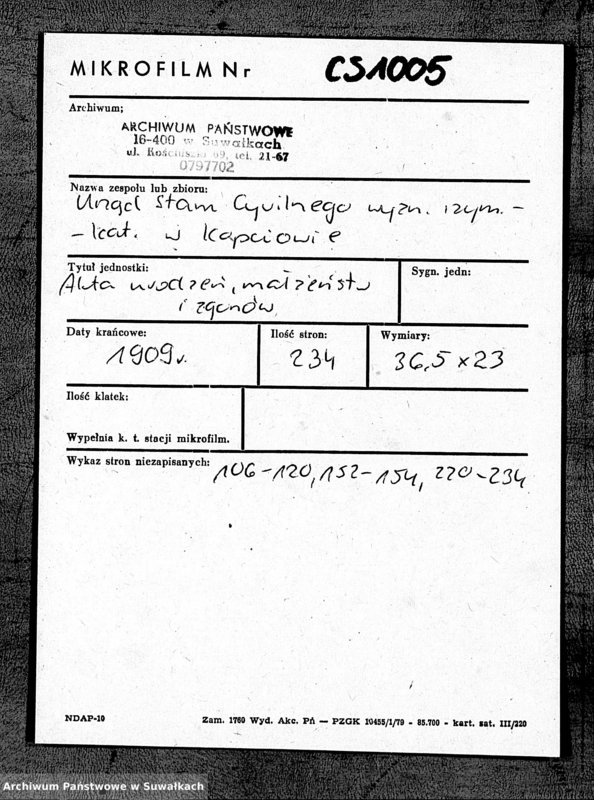 MIKROFILM Nr CS1005
Archiwum;
ARCHIWUM PAŃSTWOWE
16-400 w Suwałkach
ul. Kościuszki 69, tel. 21-67
0797702
Nazwa zespołu lub zbioru:
Urząd Stanu Cywilnego wyzn. rzym. -
- kat. w Kapciowie
Tytuł jednostki:
Akta urodzeń, małżeństw
i zgonów
Sygn. jedn:
Daty krańcowe:
1909r.
Ilość stron:
234
Wymiary:
36,5 x 23
Ilość klatek:
Wypełnia k. t. stacji mikrofilm.
Wykaz stron niezapisanych: 106-120, 152-154, 220-234
NDAP-10
Zam. 1760 Wyd. Akc. Pń — PZGK 10455/1/79 - 85.700 - kart. sat. III/220
Archiwum Państwowe w Suwałkach